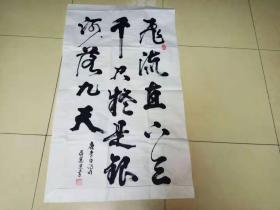 飞流直下三
千尺疑是银
河落九天